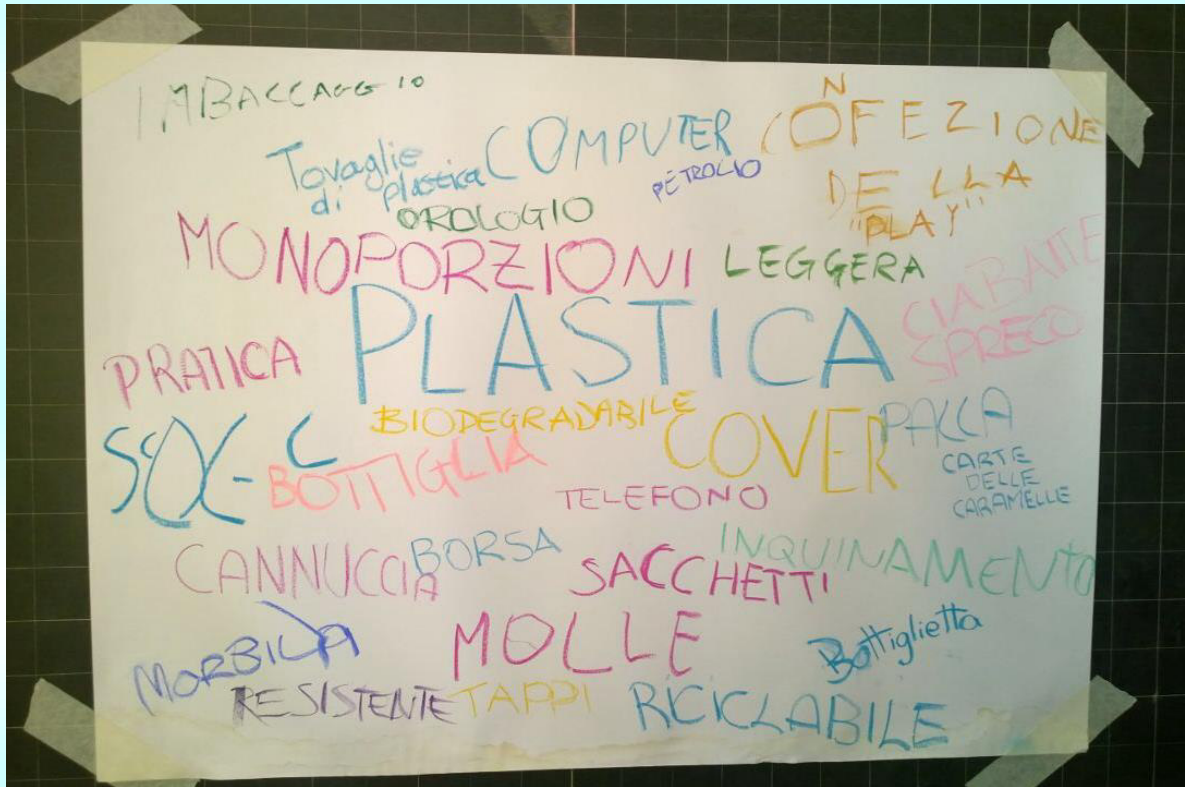 IMBACCAGGIO
Tovaglie
di plastica
COMPUTER
PETROLIO
CONFEZIONE
DELLA
"PLAY"
OROLOGIO
MONOPORZIONI
LEGGERA
CIABATTE
SPRECO
PLASTICA
PRATICA
BIODEGRADABILE
COVER
PALLA
CARTE
DELLE
CARAMELLE
BOTTIGLIA
TELEFONO
CANNUCCIA
BORSA
SACCHETTI
INQUINAMENTO
MOLLE
Bottiglietta
RESISTENTE
TAPPI
RICICLABILE